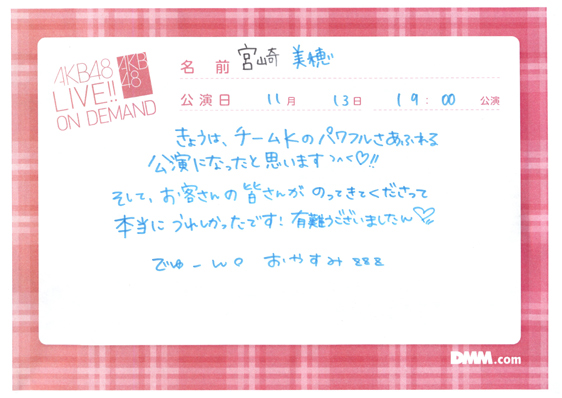 AKB48
LIVE!!
ON DEMAND
AKB
48
名前 宮崎 美穂
公演日 11月 13日 19:00 公演
きょうは、チームKのパワフルさあふれる
公演になったと思います♡!!
そして、お客さんの皆さんが のってきてくださって
本当に うれしかったです! 有難うございましたん♡!!
でゅーん。 おやすみ
DMM.com